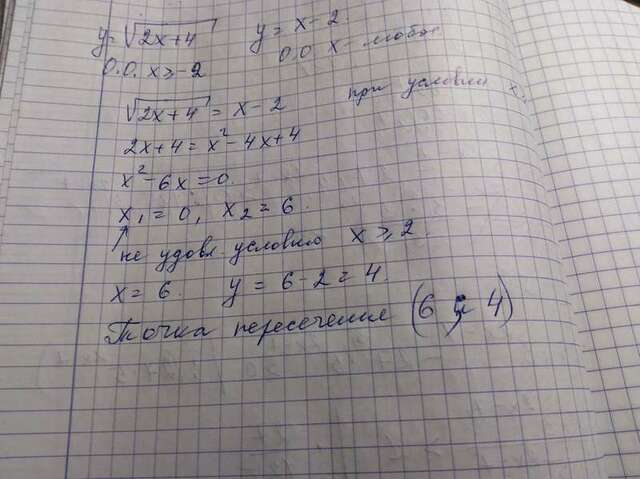 y=√2x+4 y = x-2
О.О. x≥-2 О.О x - любое
√2x+4 = x-2 при условии x
2x+4 = x²-4x+4
x²-6x=0
x₁=0, x₂=6.
не удовл. условию x≥2
x=6. y=6-2=4.
Точка пересечение (6; 4)